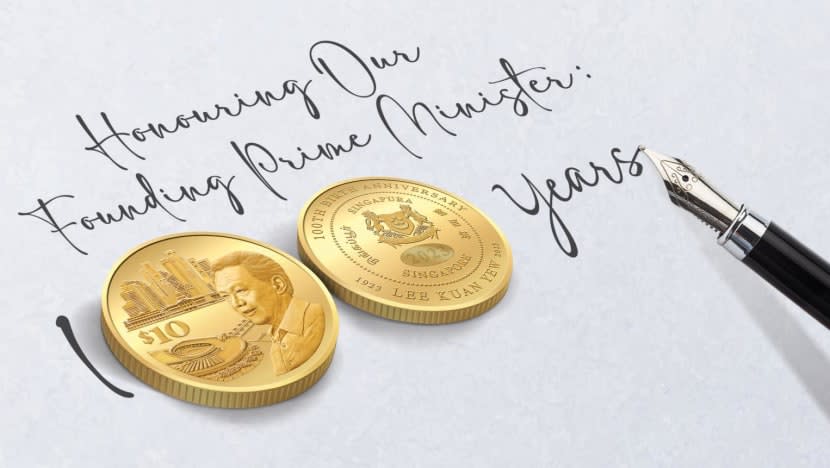 Honouring Our
Founding Prime Minister:
1
Years
$10
100TH BIRTH ANNIVERSARY
SINGAPURA
2023
SINGAPORE
1923 LEE KUAN YEW 2023